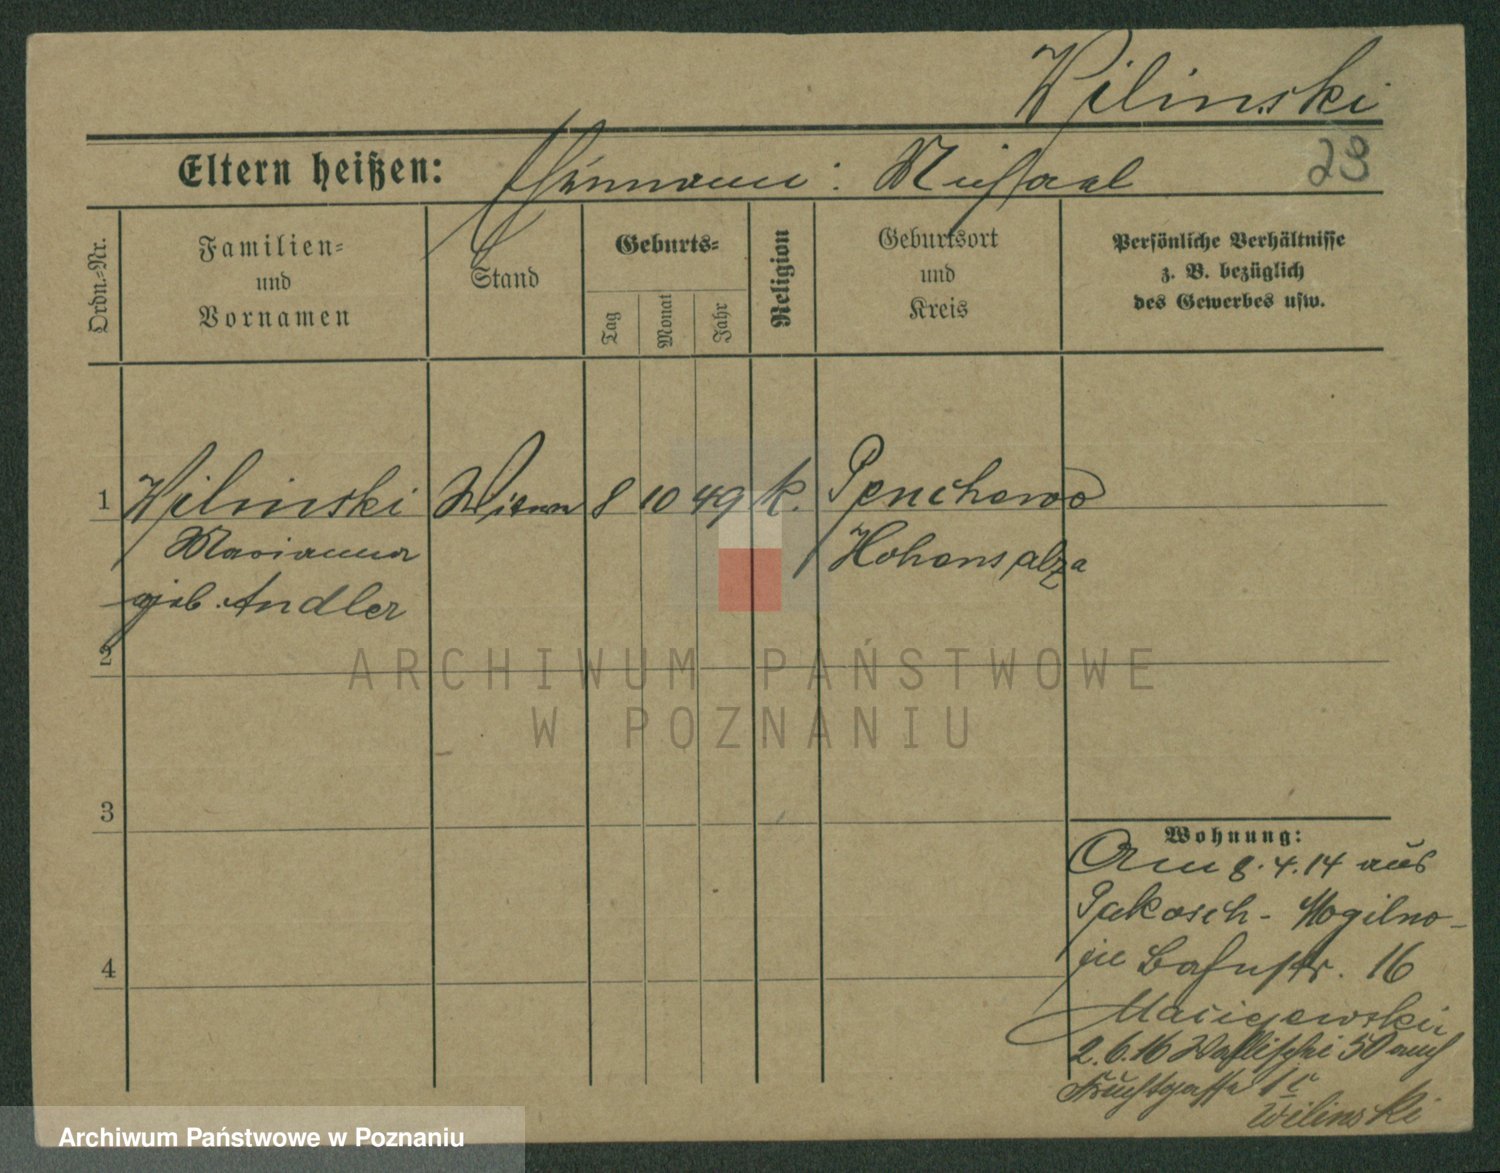 Wilinski
Eltern heißen: Ehemann: Michael
23
Ordn.-Nr.
Familien-
und
Vornamen
Stand
Geburts-
Tag
Monat
Jahr
Religion
Geburtsort
und
Kreis
Persönliche Verhältnisse
z. B. bezüglich
des Gewerbes usw.
1 Wilinski Witwe 8 10 49 k. Pencherwo
Marianna Hohensalza
geb. Andler
2
3
4
Wohnung:
Am 8.4.14 aus
Pakosch - Mogilno -
in Bahnstr. 16
Maciejewski
2.6.16 Wallischei 50 nach
Fruchtgasse 1 c
Wilinski
ARCHIWUM PAŃSTWOWE
W POZNANIU
Archiwum Państwowe w Poznaniu